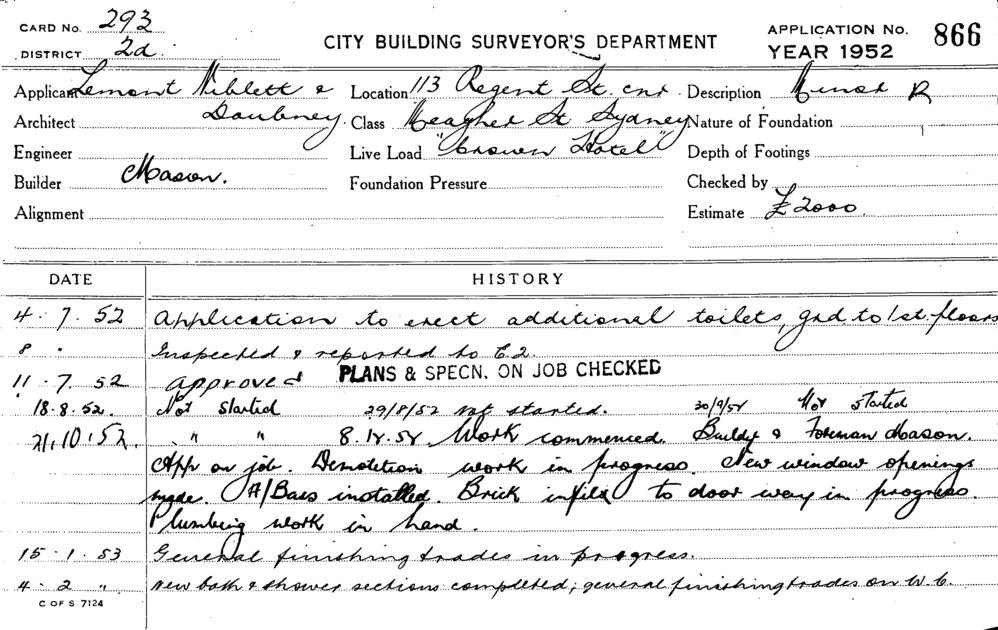 CARD No. 293
DISTRICT 2d.
CITY BUILDING SURVEYOR'S DEPARTMENT
APPLICATION No. 866
YEAR 1952
Applicant Lemont Niblett &
Architect Daubney.
Engineer
Builder Mason.
Alignment
Location 113 Regent St. cnr.
Class Meagher St Sydney
Live Load "Crown Hotel"
Foundation Pressure
Description Minor R
Nature of Foundation
Depth of Footings
Checked by
Estimate £2000.
DATE HISTORY
4. 7. 52 Application to erect additional toilets, grd. to 1st. floors
8 " Inspected & reported to C.2.
11. 7. 52 approved PLANS & SPECN. ON JOB CHECKED
18.8.52. Not Started 29/8/52 Not started. 30/9/52 Not started
21.10.52. " " 8.12.52 Work commenced. Builder & Foreman Mason.
App on job. Demolition work in progress. New window openings
made. A/Bars installed. Brick infill to door way in progress.
Plumbing work in hand.
15. 1. 53 General finishing trades in progress.
4. 2 " New bath & shower sections completed; general finishing trades on W.C.
C OF S 7124